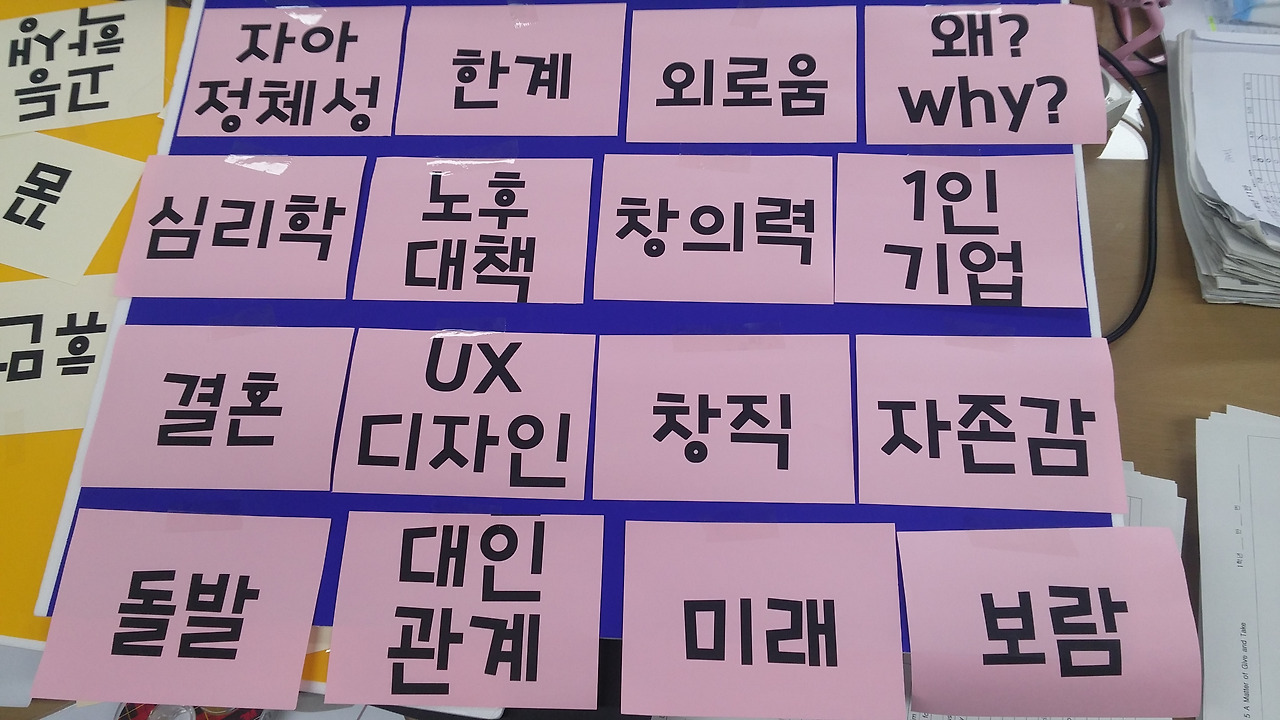 자아
정체성
한계
외로움
왜?
why?
심리학
노후
대책
창의력
1인
기업
결혼
UX
디자인
창직
자존감
돌발
대인
관계
미래
보람
고득
학생
꿈
5 A Matter of Give and Take